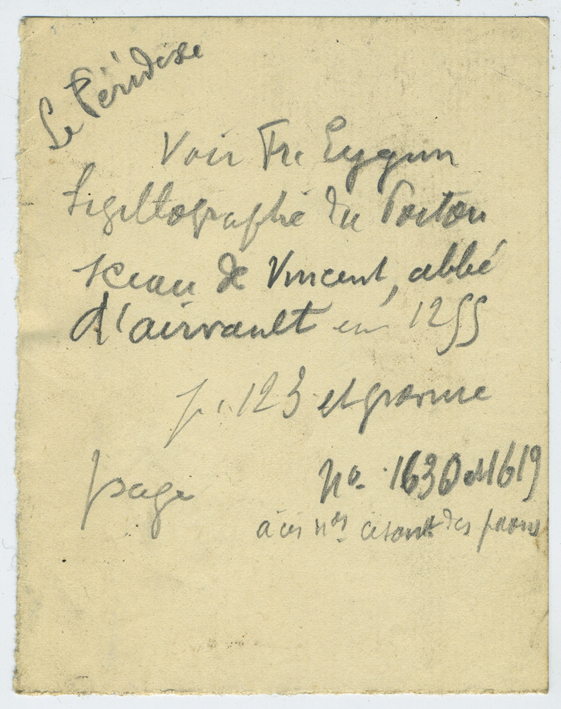 Le Péridose
Voir Fr. Eygun
Sigillographie du Poitou
sceau de Vincent, abbé
d'airvault en 1255
p. 123 et gravure
page
No. 1630 et 1619
à ces nos ce sont des